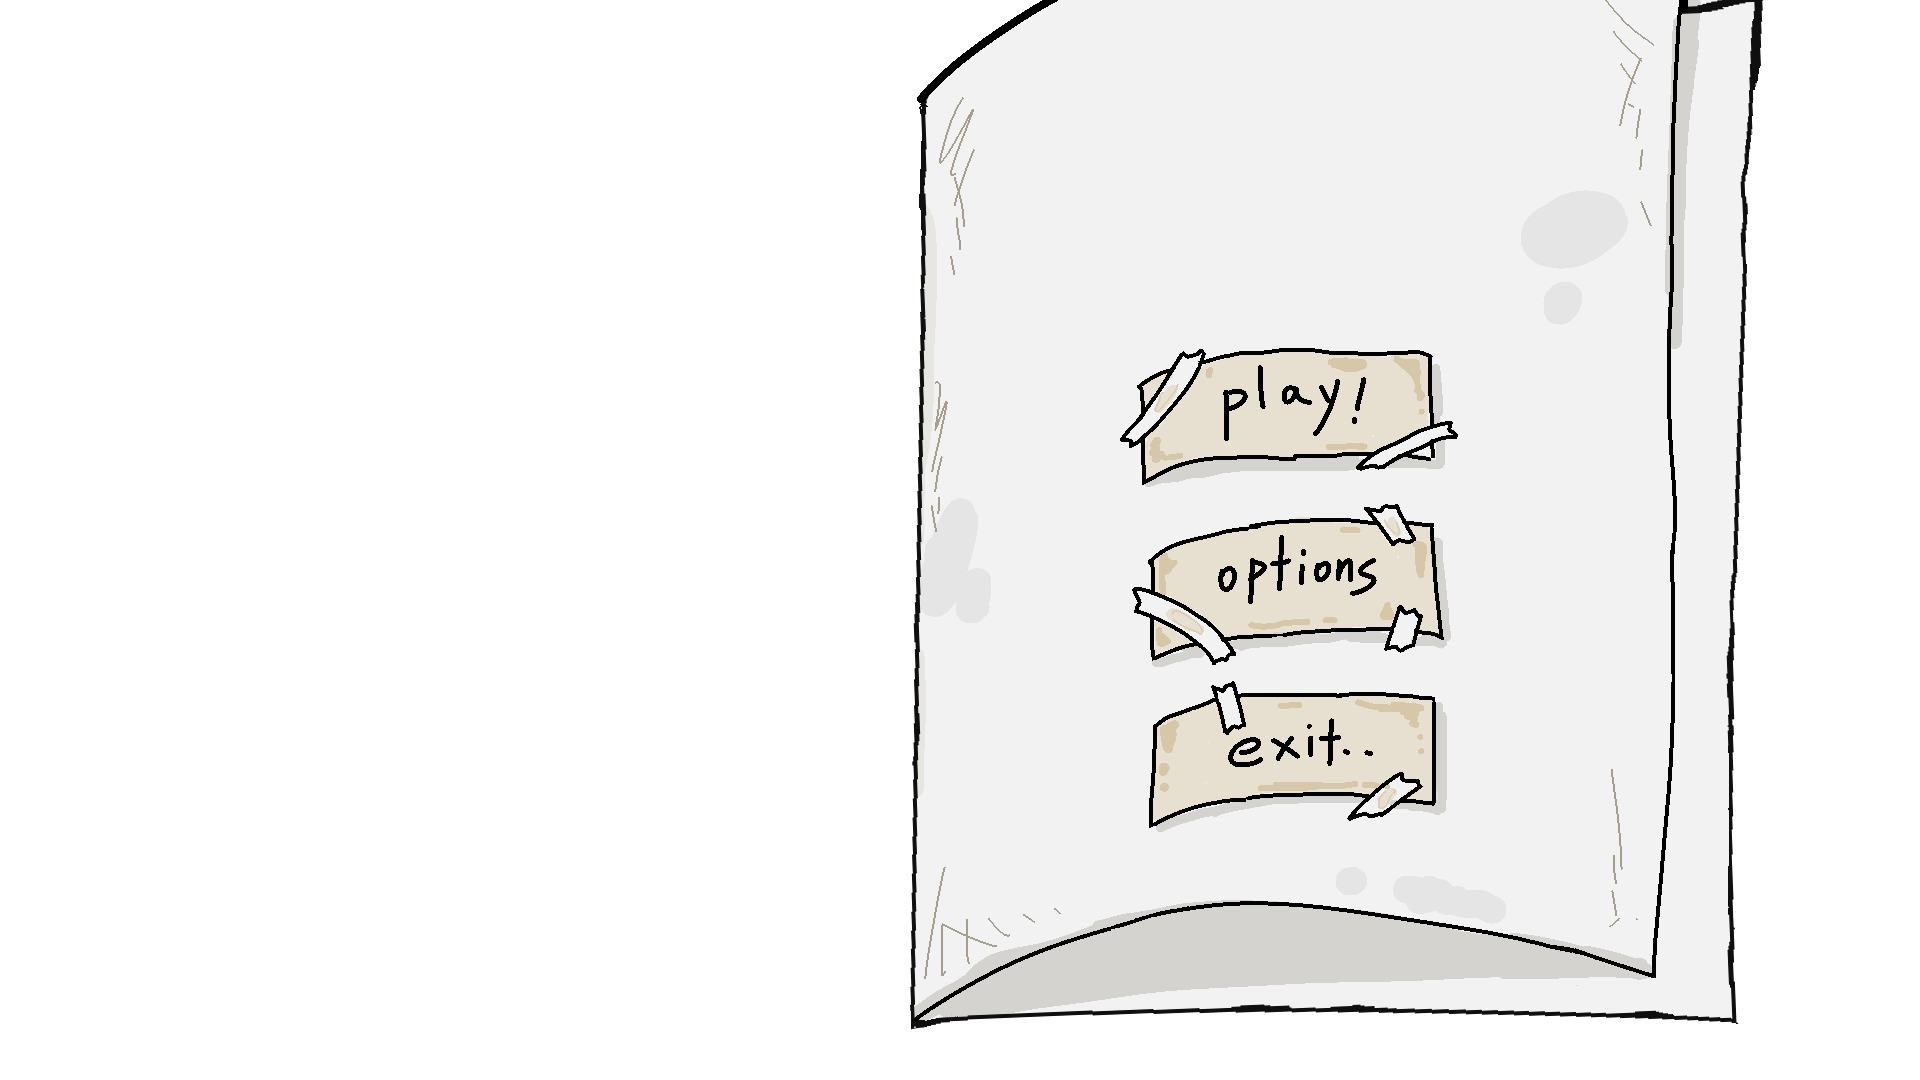 play!
options
exit..